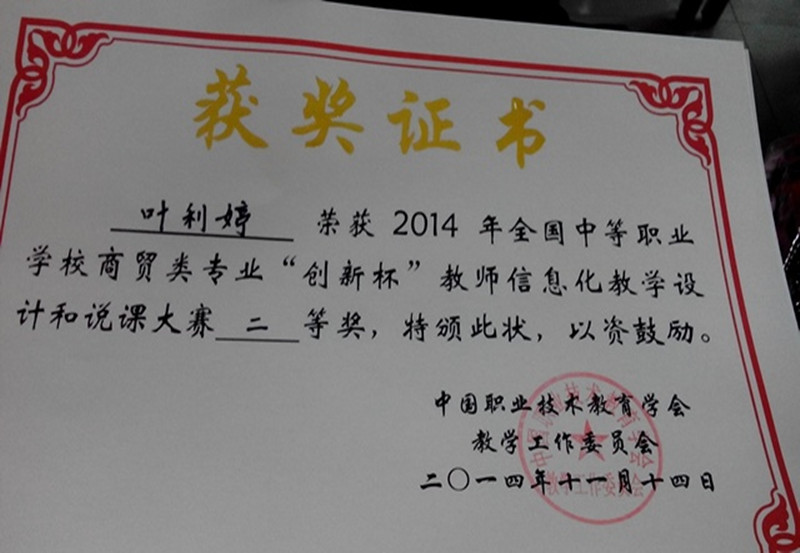 获奖证书
叶利婷 荣获 2014 年全国中等职业
学校商贸类专业“创新杯”教师信息化教学设
计和说课大赛 二 等奖，特颁此状，以资鼓励。
中国职业技术教育学会
教学工作委员会
二〇一四年十一月十四日
中国职业技术教育学会
教学工作委员会